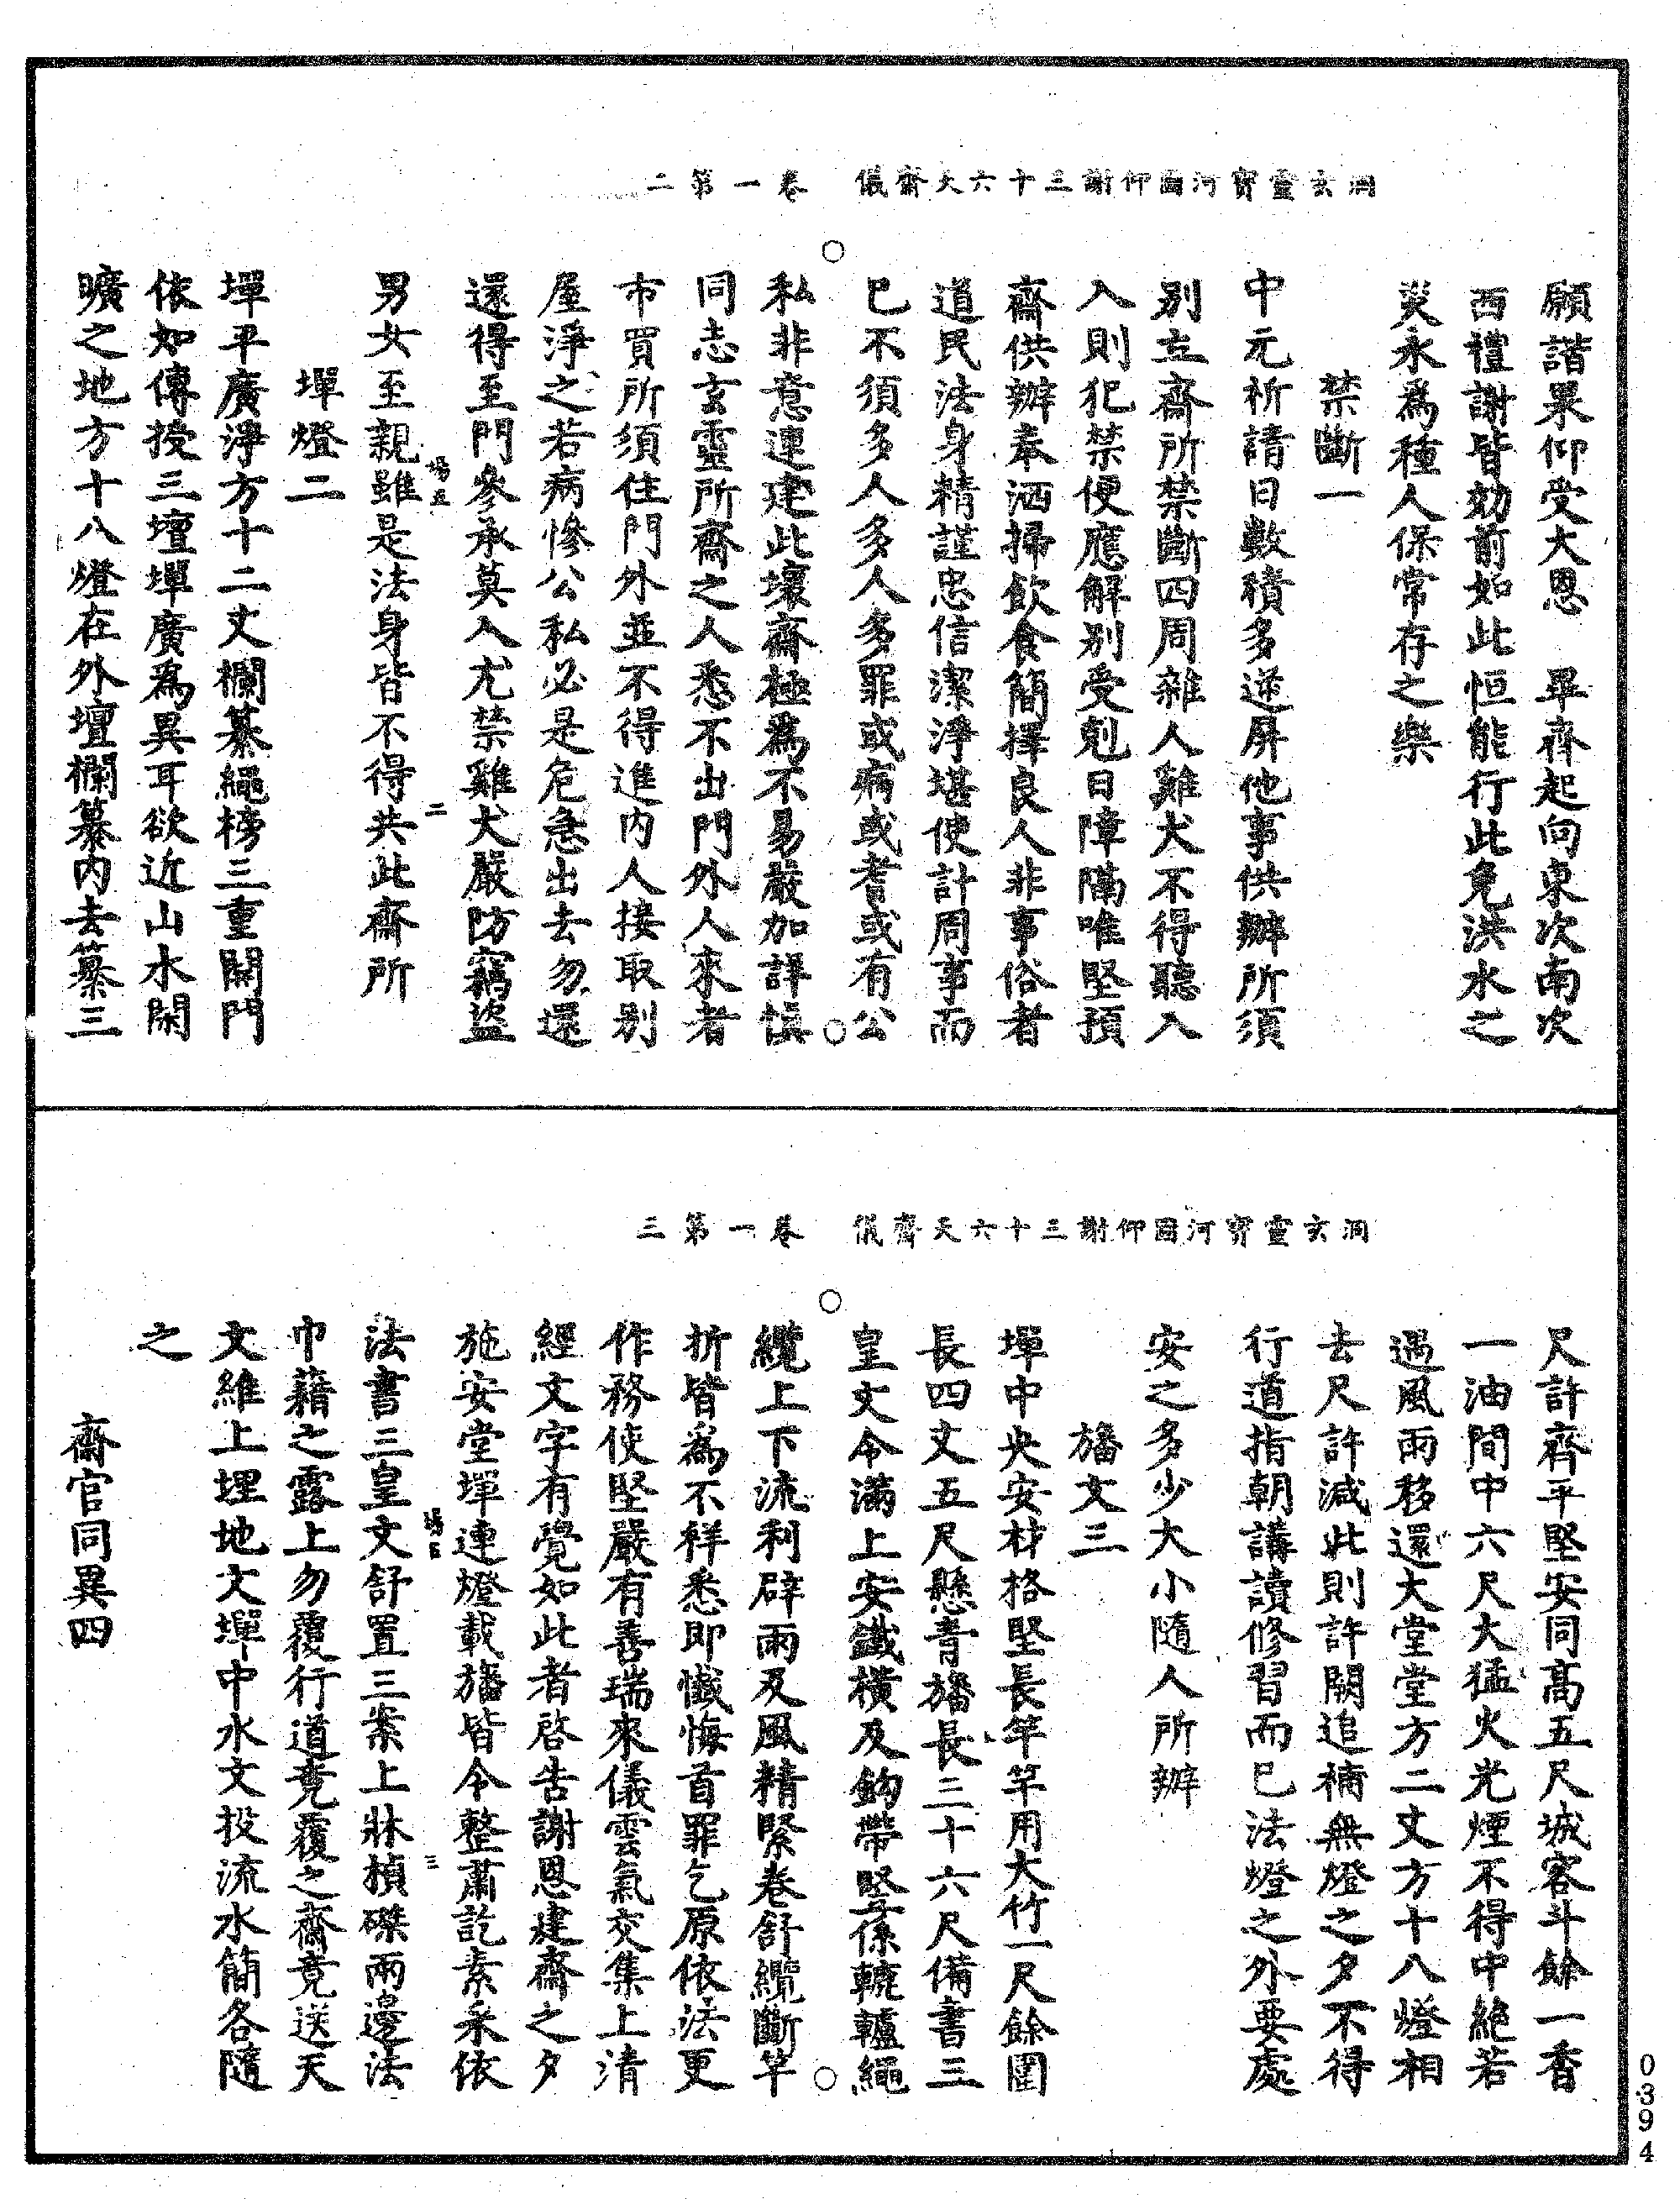 洞玄靈寳河圖仰謝三十六天齋儀　卷一第二
願諧果仰受大恩　畢齊起向東次南次
西禮謝皆効前如此恒能行此免洪水之
災永爲種人保常存之樂
禁斷一
中元祈請日數積多逆屏他事供辦所須
別立齋所禁斷四周雜人雞犬不得聽入
入則犯禁便應解别受剋日障隔唯堅預
齋供辦奉洒掃飲食簡擇良人非事俗者
道民法身精謹忠信潔淨堪使計周事而
已不須多人多人多罪或病或耆或有公
私非意連建此壞齋極爲不易嚴加詳愼
同志玄靈所齋之人悉不出門外人來者
市買所須住門外並不得進内人接取别
屋淨之若病慘公私必是危急出去勿還
還得至門參承莫入尤禁雞犬嚴防竊盜
塲五　二
男女至親雖是法身皆不得共此齋所
墠燈二
墠平廣淨方十二丈欄纂繩榜三重開門
依如傳授三壇墠廣爲異耳欲近山水閑
曠之地方十八燈在外壇欄纂内去纂三
洞玄靈寳河圖仰謝三十六天齋儀　卷一第三
尺許齊平堅安同高五尺城容斗餘一香
一油間中六尺大猛火光煙不得中絶若
遇風雨移還大堂堂方二丈方十八燈相
去尺許減此則許闕追補無燈之夕不得
行道指朝講讀修習而已法燈之外要處
安之多少大小隨人所辦
旛文三
墠中央安材格堅長竿竿用大竹一尺餘圍
長四丈五尺懸青旛長三十六尺備書三
皇文令滿上安鐵横及鈎帶堅係轆轤繩
纜上下流利辟雨及風精緊卷舒纜斷竿
折皆爲不祥悉即懺悔首罪乞原依法更
作務使堅嚴有善瑞來儀雲氣交集上清
經文字有覺如此者啓告謝恩建齋之夕
施安堂墠連燈載旛皆令整肅訖素釆依
三
法書三皇文舒置三案上牀楨磔兩邊法
巾藉之露上勿覆行道竟覆之齋竟送天
文維上埋地文墠中水文投流水簡各隨
之
齋官同異四
0394